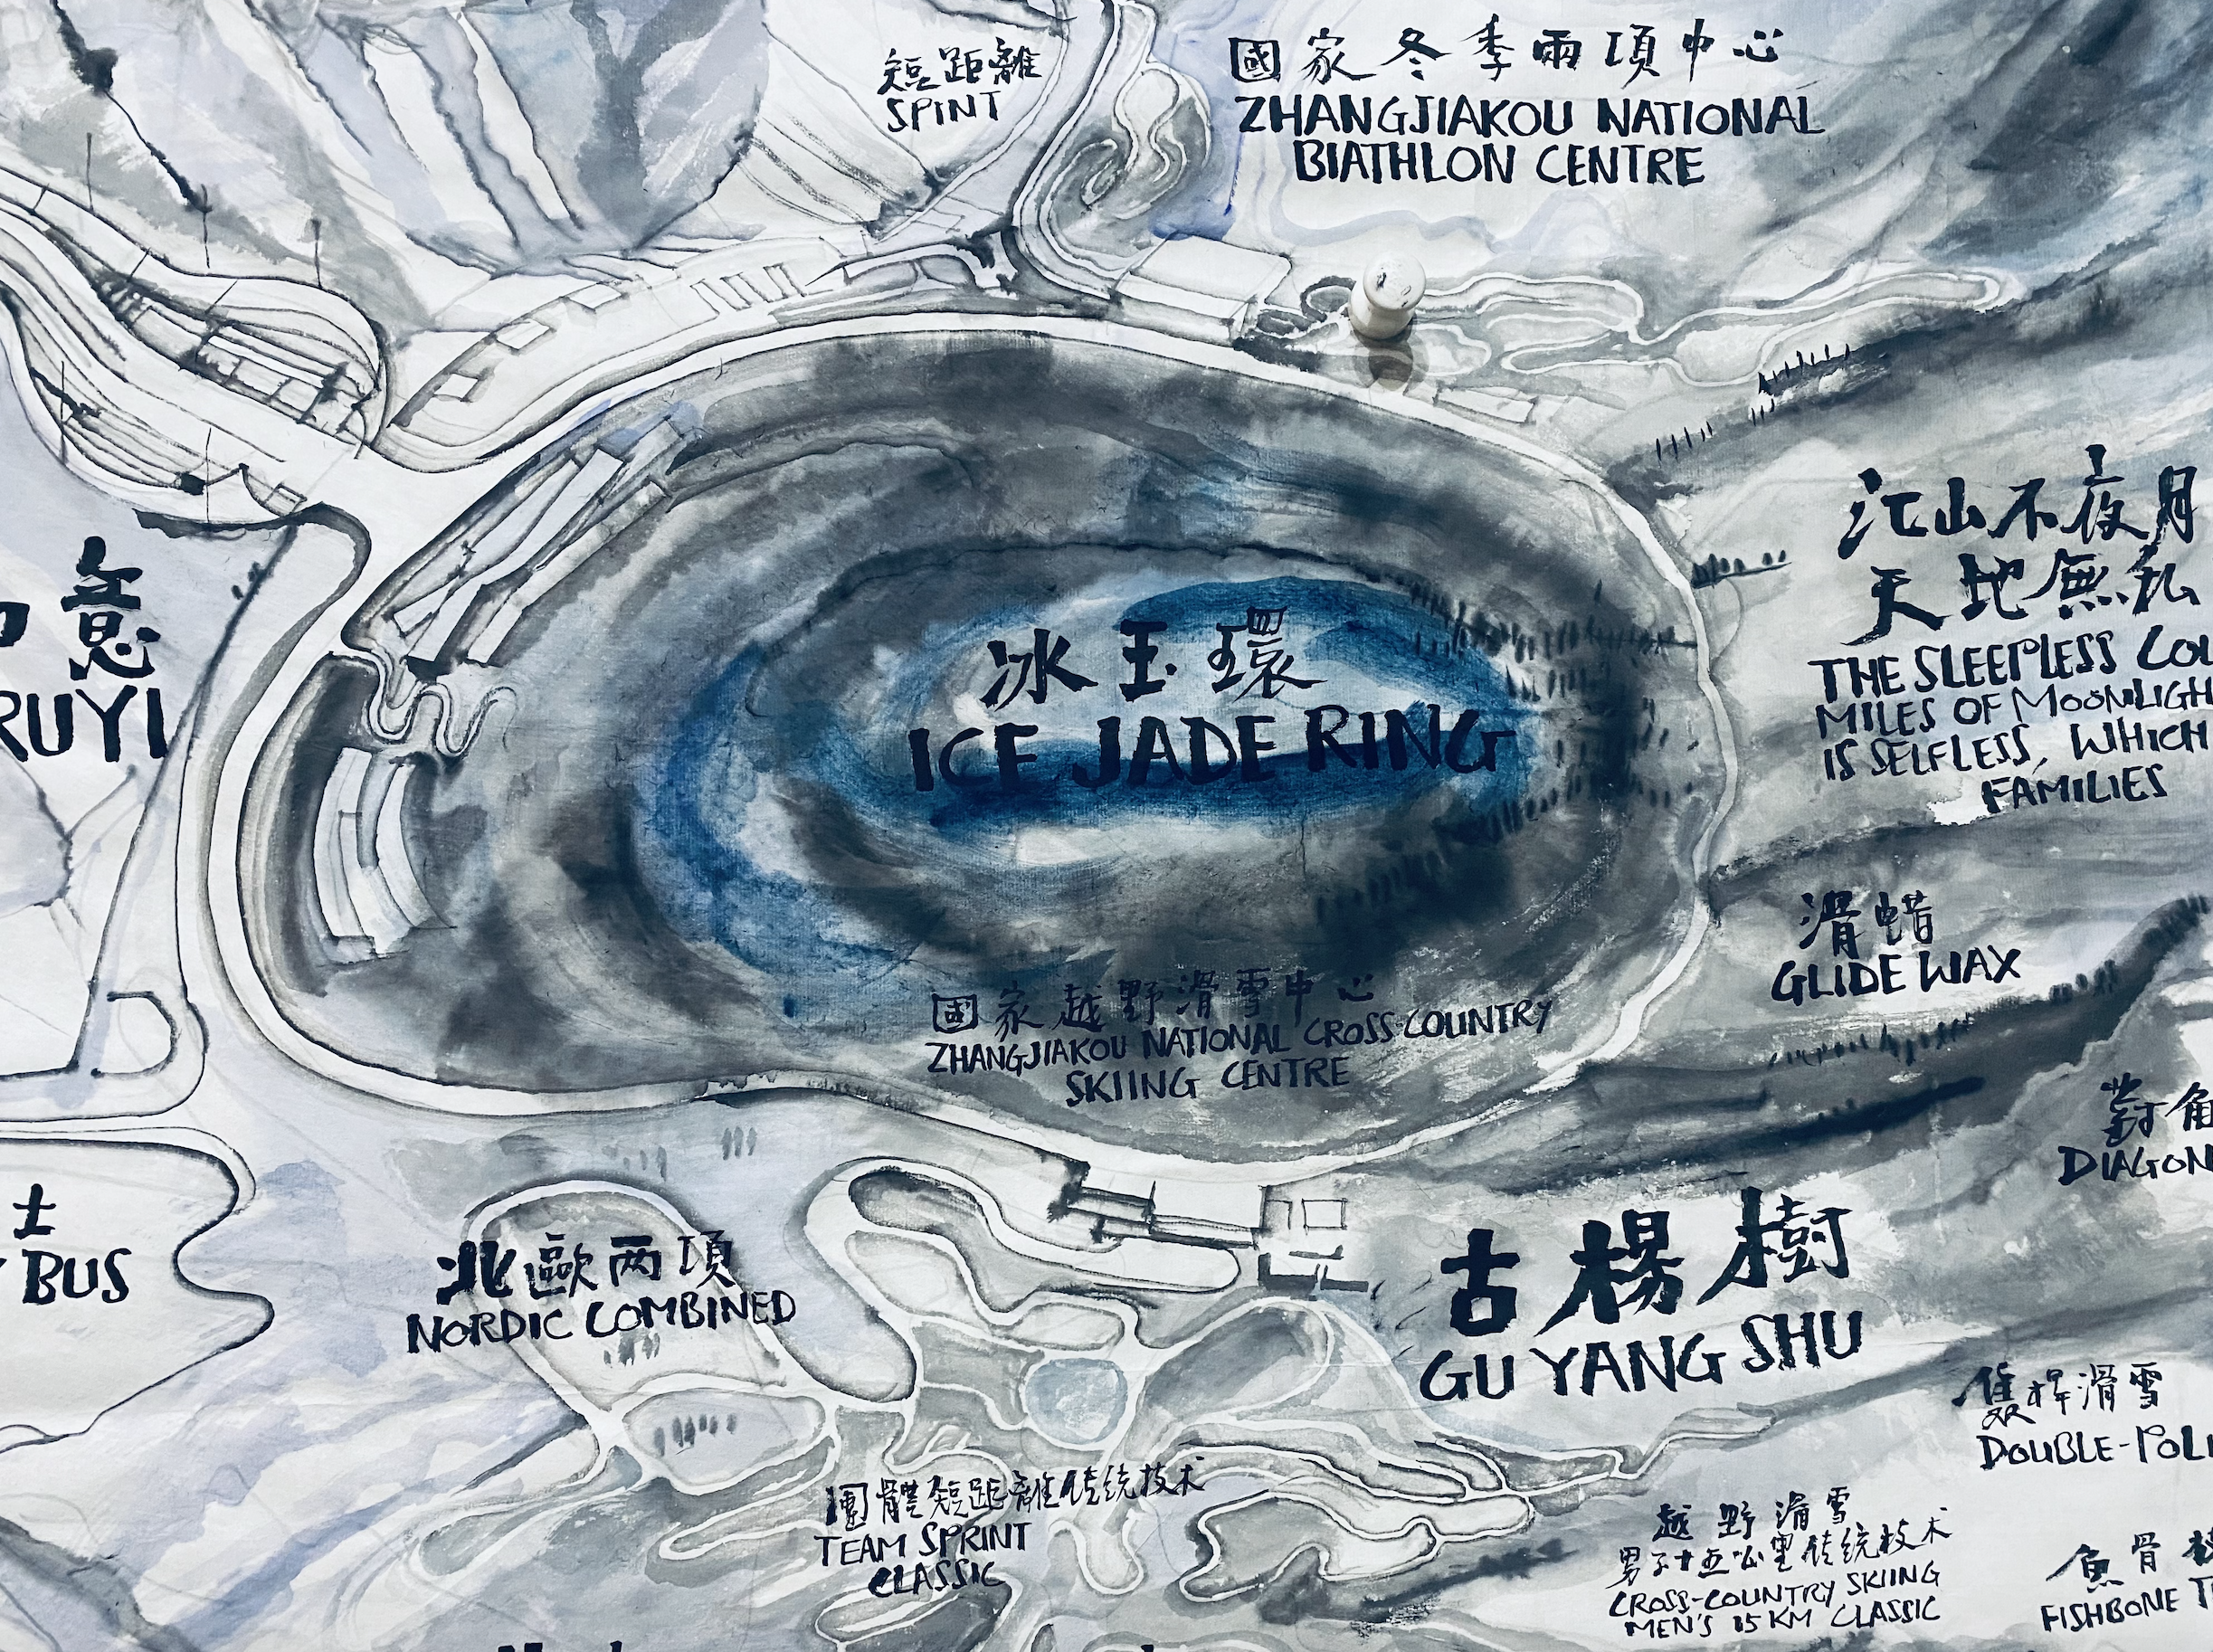 短距離
SPINT
國家冬季兩項中心
ZHANGJIAKOU NATIONAL
BIATHLON CENTRE
意
RUYI
冰玉環
ICE JADE RING
江山不夜月
天地無私
THE SLEEPLESS
MILES OF MOONLIGH
IS SELFLESS, WHICH
FAMILIES
滑蜡
GLIDE WAX
國家越野滑雪中心
ZHANGJIAKOU NATIONAL CROSS-COUNTRY
SKIING CENTRE
對角
DIAGON
士
BUS
北歐两項
NORDIC COMBINED
古楊樹
GU YANG SHU
滑雪
DOUBLE-POL
團體短距離传统技术
TEAM SPRINT
CLASSIC
越野滑雪
男子十五公里传统技术
CROSS-COUNTRY SKIING
MEN'S 15 KM CLASSIC
魚骨
FISHBONE T